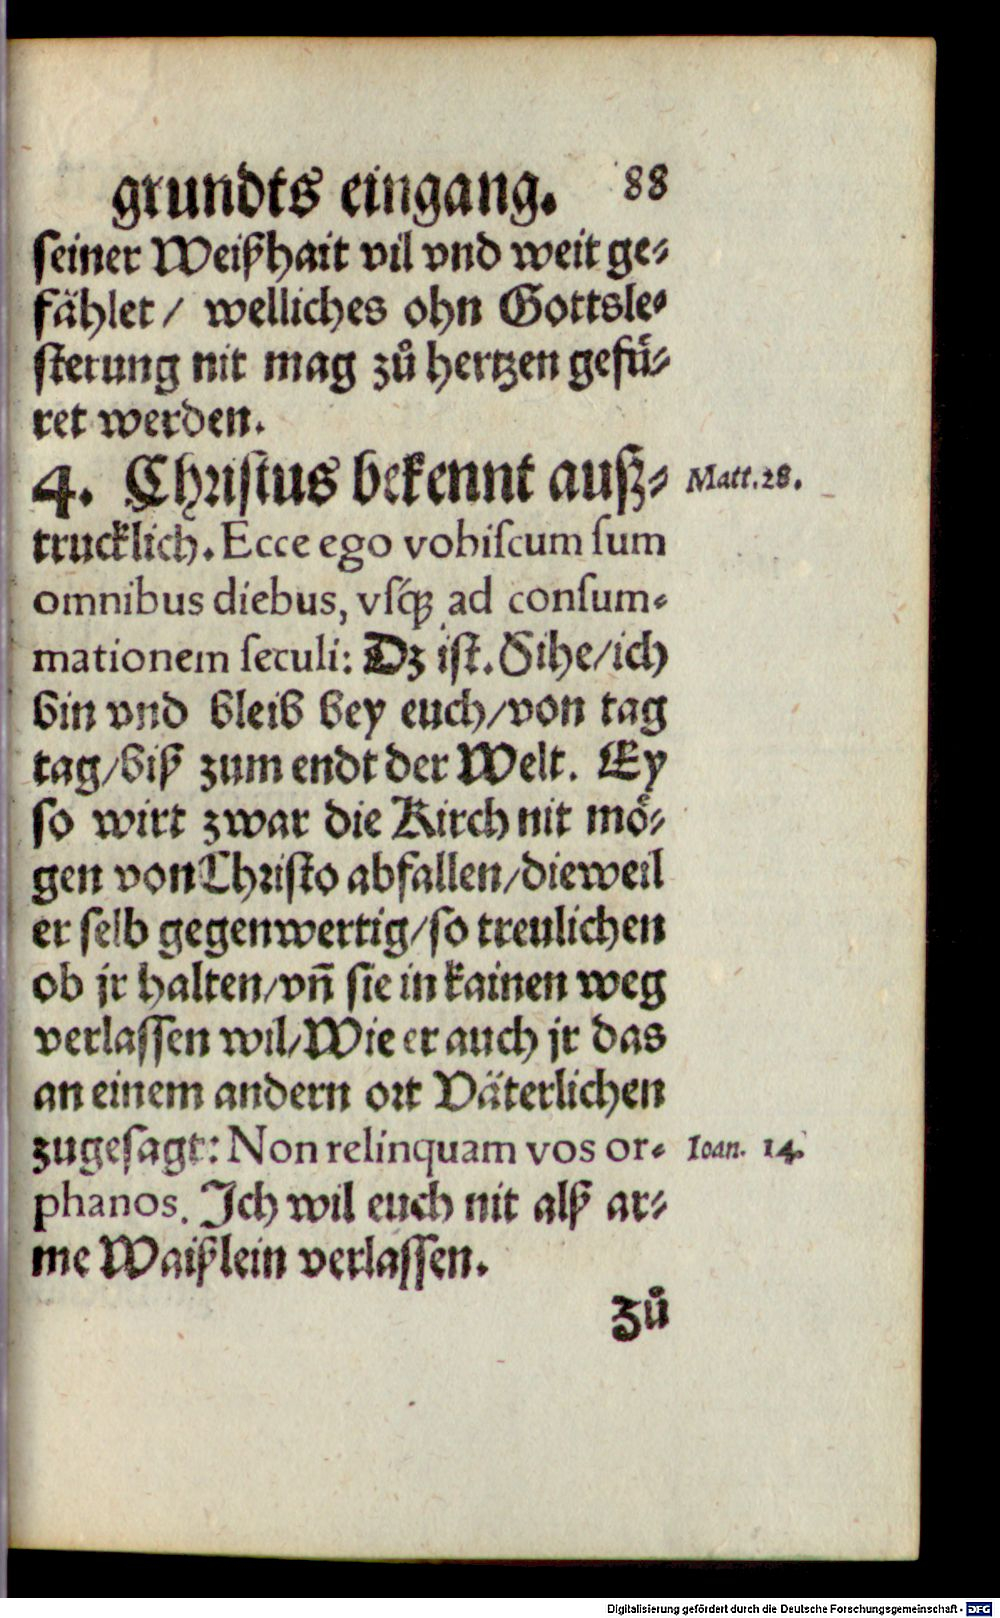 grundts eingang. 88
seiner Weißhait vil vnd weit ge⸗
fählet / welliches ohn Gottsle⸗
sterung nit mag zů hertzen gefü⸗
ret werden.
4. Christus bekennt auß⸗ Matt.28.
trucklich. Ecce ego vobiſcum ſum
omnibus diebus, vſq́ꝫ ad conſum⸗
mationem ſeculi: Dz ist. Sihe/ich
bin vnd bleib bey euch/von tag
tag/biß zum endt der Welt. Ey
so wirt zwar die Kirch nit mö⸗
gen von Christo abfallen/dieweil
er selb gegenwertig/so treulichen
ob jr halten/vñ sie in kainen weg
verlassen wil/Wie er auch jr das
an einem andern ort Väterlichen
zugesagt: Non relinquam vos or⸗ Ioan. 14.
phanos. Ich wil euch nit alß ar⸗
me Waißlein verlassen.
Zů
Digitalisierung gefördert durch die Deutsche Forschungsgemeinschaft - DFG